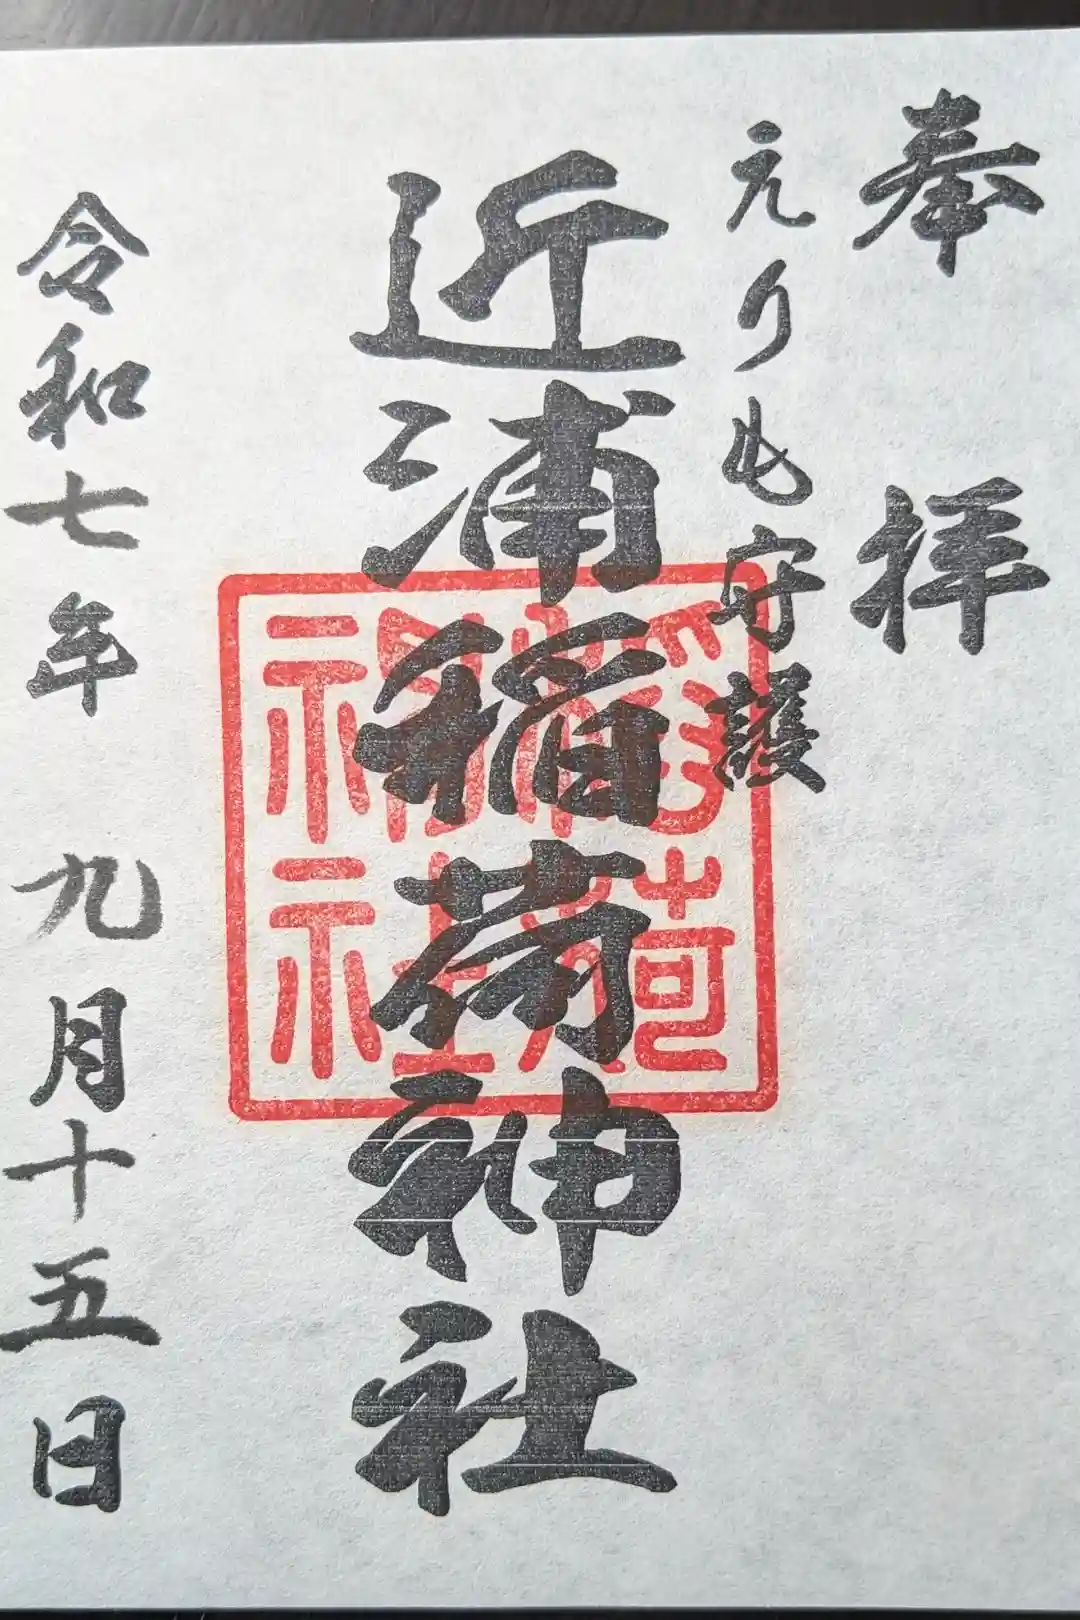 奉拝
えりも守護
近浦稲荷神社
令和七年九月十五日